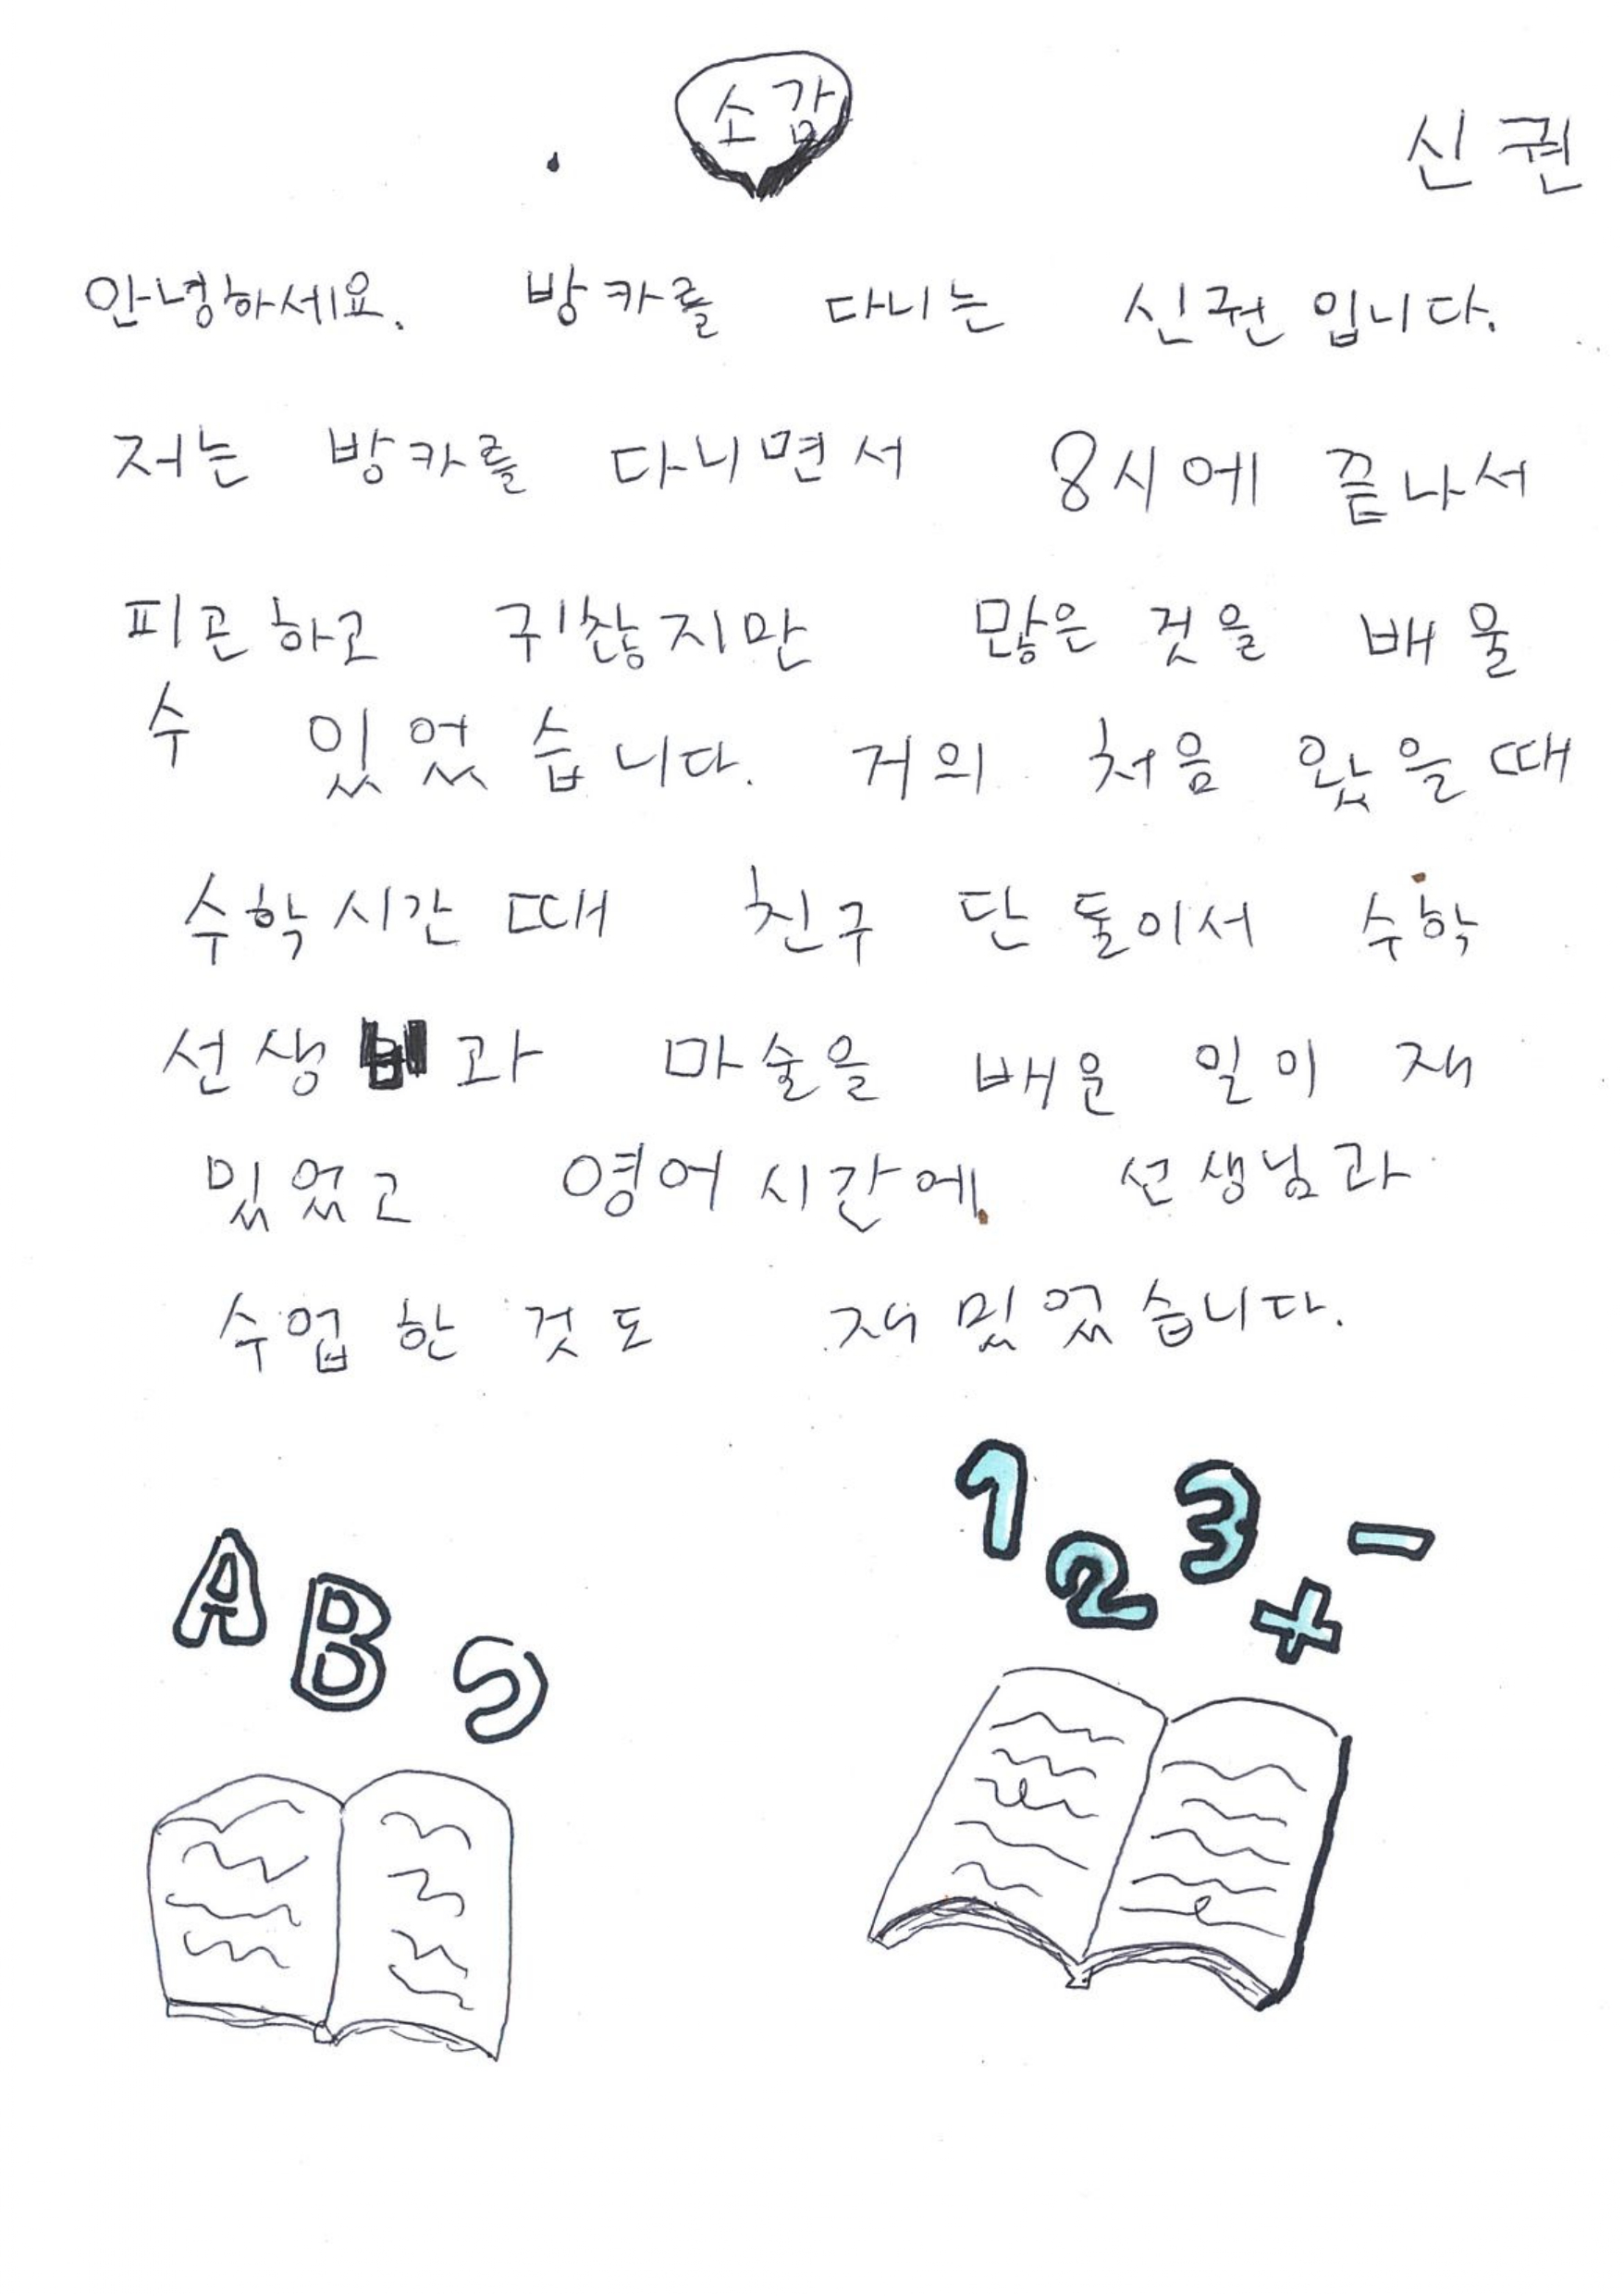 소감
신권
안녕하세요. 방카를 다니는 신권입니다.
저는 방카를 다니면서 8시에 끝나서
피곤하고 귀찮지만 많은 것을 배울
수 있었습니다. 거의 처음 왔을때
수학시간 때 친구 단 둘이서 수학
선생 과 마술을 배운 일이 재
밌었고 영어시간에 선생님과
수업 한 것도 재밌었습니다.
1 2 3 + -
A B